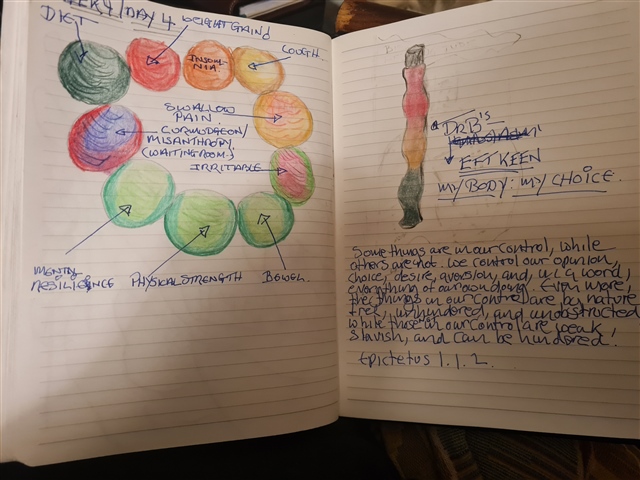 WEEK 4/DAY 4
DIET
WEIGHT GAIN
COUGH.
INSOM-
NIA.
SWALLOW
PAIN.
CURMUDGEON/
MISANTHROPY
(WAITING ROOM.)
IRRITABLE
MENTAL
RESILIENCE
PHYSICAL STRENGTH
BOWEL.
DR B'S
EFFKEEN
MY BODY: MY CHOICE.
Some things are in our control, while
others are not. We control our opinion,
choice, desire, aversion, and, in a word,
everything of our own doing. Even more,
the things in our control are by nature
free, unhindered, and unobstructed
while those in our control are weak,
slavish, and can be hindered!
Epictetus 1.1.2.